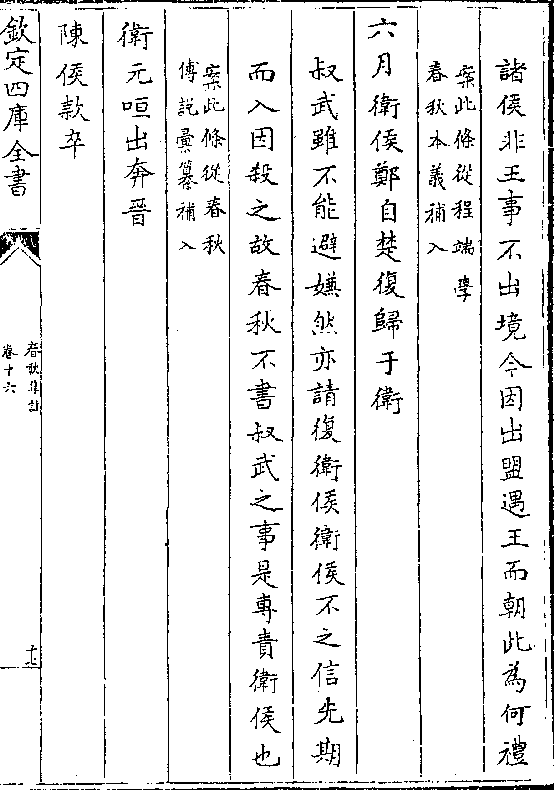 諸侯非王事不出境今因出盟遇王而朝此為何禮
案此條從程端學
春秋本義補入
六月衛侯鄭自楚復歸于衛
叔武雖不能避嫌然亦請復衛侯衛侯不之信先期
而入因殺之故春秋不書叔武之事是專責衛侯也
案此條從春秋
傳説彙纂補入
衛元咺出奔晉
陳侯款卒
欽定四庫全書
春秋集註
卷十六
十七